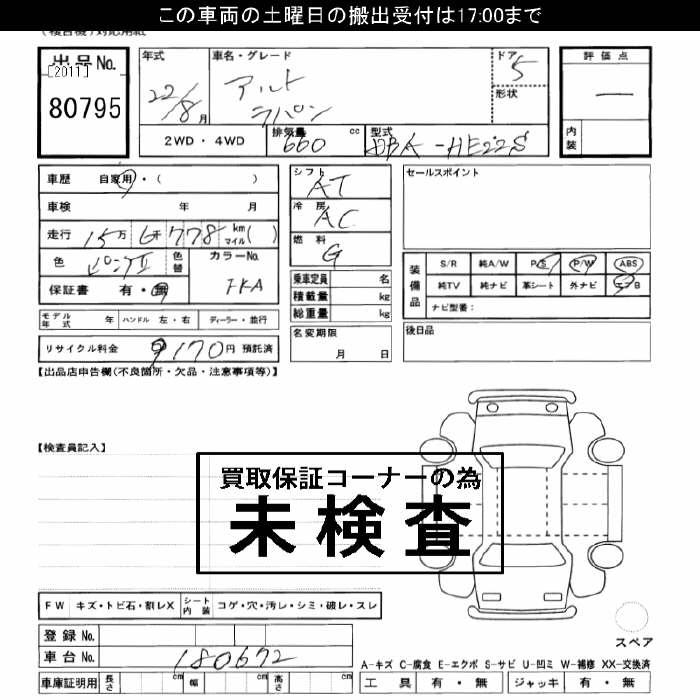 この車両の土曜日の搬出受付は17:00まで
(複合機)対応用紙
出品No. 年式 車名・グレード ドア 評価点
[2011] 80795 22/8月 アルト ラパン 5 形状 ー
2WD・4WD 排気量 660 cc 型式 DBA-HE22S 内装
車歴 自家用・( ) シフト AT セールスポイント
車検 年 月 冷房 AC
走行 15万6千778 kmマイル( ) 燃料 G
色 ピンクⅡ 色替 カラーNo. 装備品 S/R 純A/W P/S P/W ABS
保証書 有・無 乗車定員 名 純TV 純ナビ 革シート 外ナビ エアB
積載量 kg ナビ型番:
総重量 kg
モデル年式 年 ハンドル 左・右 ディーラー・並行 名変期限 月 日 後日品
リサイクル料金 9170円 預託済
【出品店申告欄(不良箇所・欠品・注意事項等)】
【検査員記入】
買取保証コーナーの為
未検査
FW キズ・トビ石・割レX シート内装 コゲ・穴・汚レ・シミ・破レ・スレ
登録No.
スペア
車台No. 180672
A-キズ C-腐食 E-エクボ S-サビ U-凹ミ W-補修 XX-交換済
車庫証明用 長さ cm 幅 cm 高さ cm 工具 有・無 ジャッキ 有・無